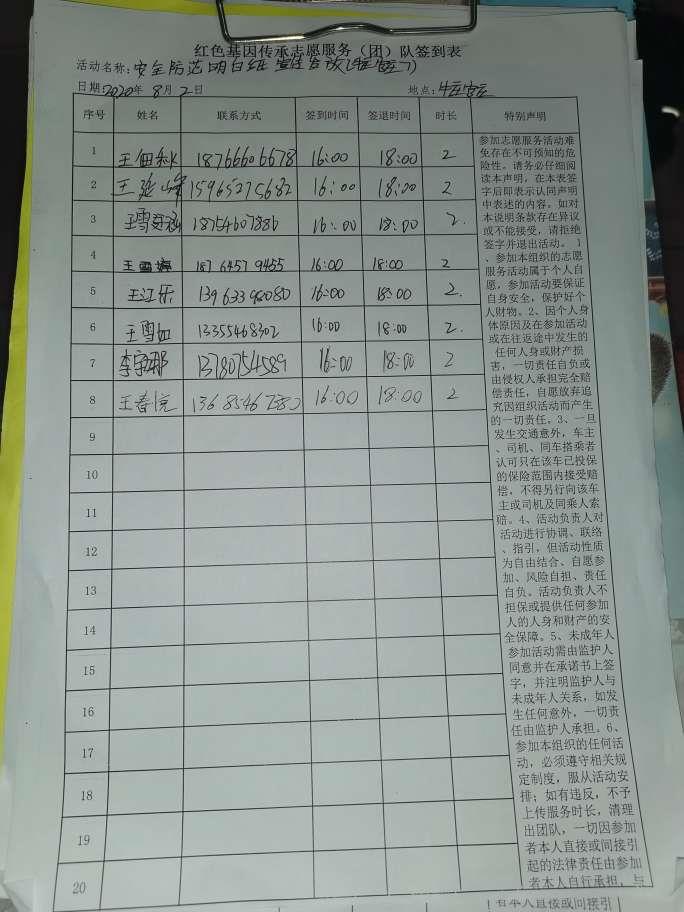 红色基因传承志愿服务（团）队签到表
活动名称：安全防范明白纸宣传发放
日期2020年 8月 2日 地点：
序号 姓名 联系方式 签到时间 签退时间 时长 特别声明
1 王佃秋 18766606678 16:00 18:00 2
2 王延峰 15965275682 16:00 18:00 2
3 18754607886 16:00 18:00 2
4 王雪婷 18764579455 16:00 18:00 2
5 王江乐 16:00 18:00 2
6 王雪如 13355468302 16:00 18:00 2
7 13780754589 16:00 18:00 2
8 王春悦 16:00 18:00 2
9
10
11
12
13
14
15
16
17
18
19
20
参加志愿服务活动难
免存在不可预知的危
险性。请务必仔细阅
读本声明，在本表签
字后即表示认同声明
中表述的内容。如对
本说明条款存在异议
或不能接受，请拒绝
签字并退出活动。 1
、参加本组织的志愿
服务活动属于个人自
愿，参加活动要保证
自身安全，保护好个
人财物。2、因个人身
体原因及在参加活动
或在往返途中发生的
任何人身或财产损
害，一切责任自负或
由侵权人承担完全赔
偿责任，自愿放弃追
究因组织活动而产生
的一切责任。3、一旦
发生交通意外，车主
、司机、同车搭乘者
认可只在该车已投保
的保险范围内接受赔
偿，不得另行向该车
主或司机及同乘人索
赔。4、活动负责人对
活动进行协调、联络
、指引，但活动性质
为自由结合、自愿参
加、风险自担、责任
自负。活动负责人不
担保或提供任何参加
人的人身和财产的安
全保障。5、未成年人
参加活动需由监护人
同意并在承诺书上签
字，并注明监护人与
未成年人关系，如发
生任何意外，一切责
任由监护人承担。6、
参加本组织的任何活
动，必须遵守相关规
定制度，服从活动安
排；如有违反，不予
上传服务时长，清理
出团队，一切因参加
者本人直接或间接引
起的法律责任由参加
者本人自行承担，与
者本人直接或间接引